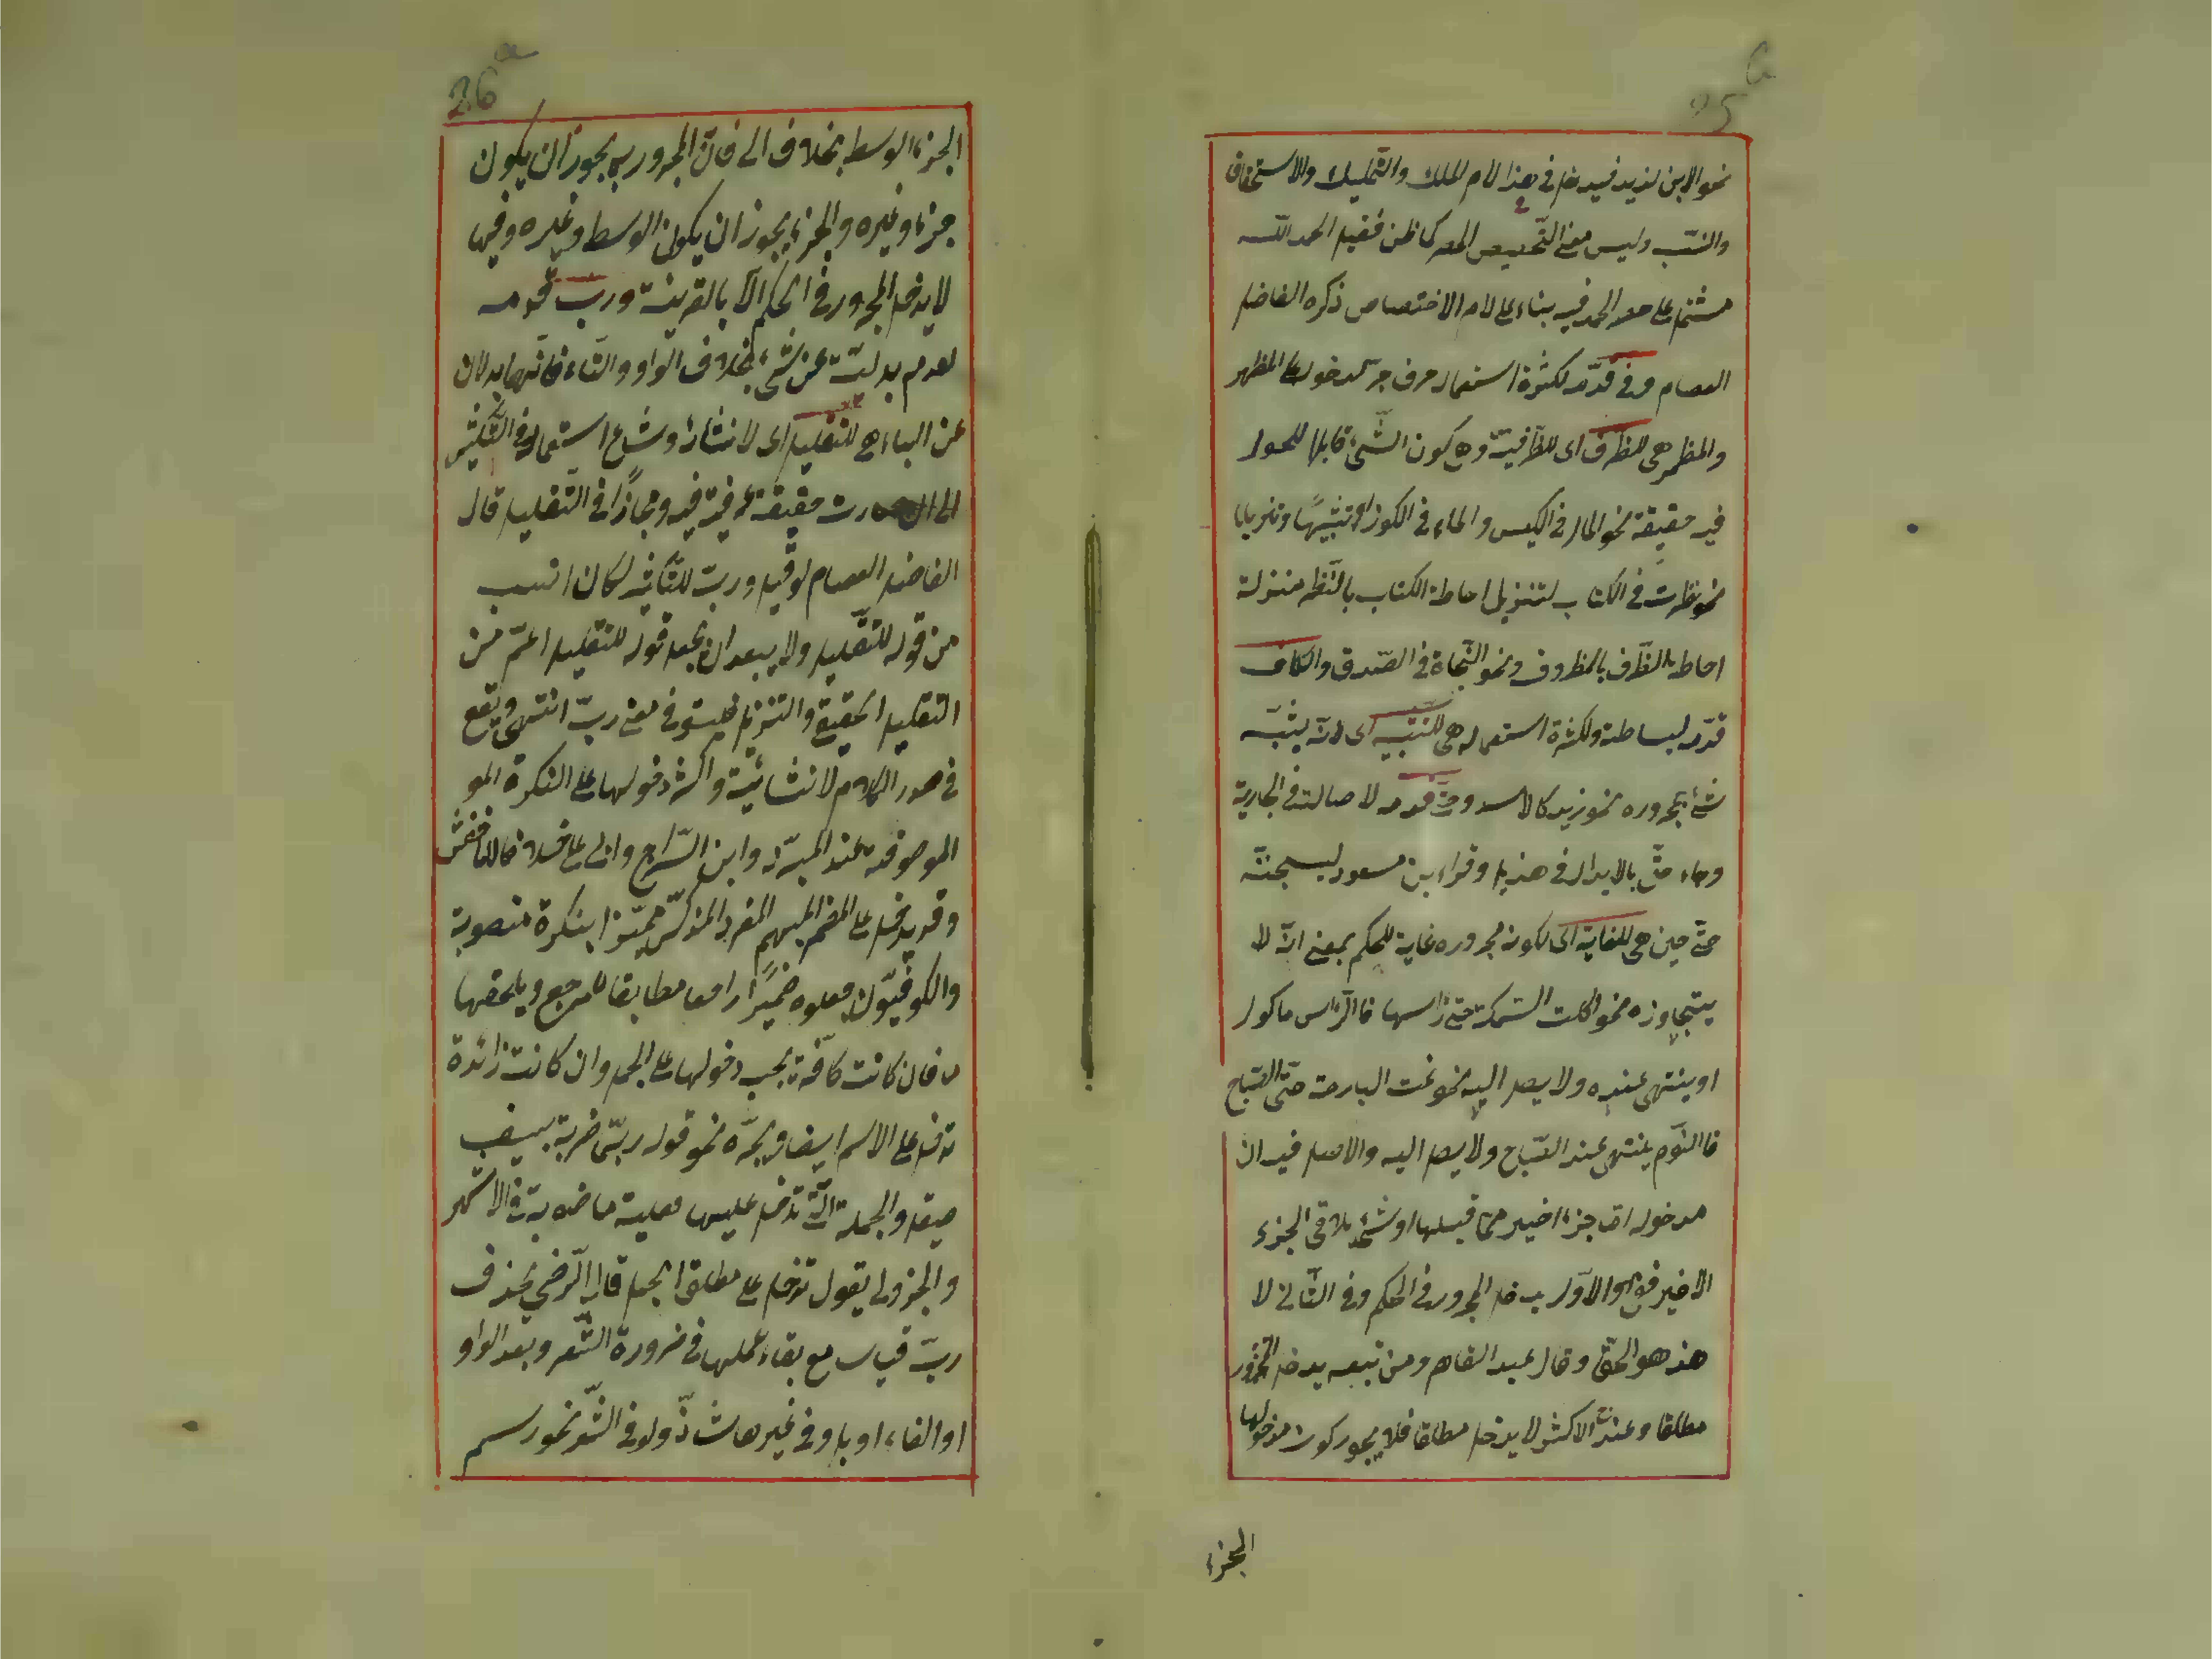 25b
نحو الابن لزيد فيدخل في هذا لام الملك والتّمليك والاستحقاق
والنسب وليس معنى التّخصيص الحصر كما ظن فقيل الحمد لله
مشتمل على حصر الحمد فيه بناء على لام الاختصاص ذكره الفاضل
العصام وفي قدّمه لكثرة استعماله حرف جر لدخوله على المظهر
والمظمر هي للظرف اى للظّرفيّة وهي كون الشّيء قابلا للحلول
فيه حقيقة نحو المال في الكيس والماء في الكوز او تشبيهًا وتنزيلا
نحو نظرت في الكتاب لتنزيل احاطة الكتاب بالنّظر منزلة
احاطة الظّرف بالمظروف ونحو النّجاة في الصّدق والكاف
قدّمه لبساطته ولكثرة استعماله هي للتّشبيه اى لانّه يشبّه
شئ بمجروره نحو زيد كالاسد وحتّى قدمه لاصالته في الجارية
وجاء عتّى بالابدال في هذيل وقراء بن مسعود ليسجننّه
عتّى حين هي للغاية اى لكونه مجروره غاية للحكم بمعنى انّه لا
يتجاوزه نحو اكلت السّمكة حتى رأسها فالرّاس ماكول
او ينتهى عنده ولا يصل اليه نحو نمت البارحة حتّى الصّباح
فالنّوم ينتهى عند الصّباح ولا يصل اليه والاصل فيه ان
مدخوله امّا جزء اخير ممّا قبلها او شئ يلاقى الجزء
الاخير ففي الاوّل يدخل المجرور في الحكم وفي الثّاني لا
هذا هو الحقّ وقال عبد القاهر ومن تبعه يدخل المجرور
مطلقا وعند الاكثر لا يدخل مطلقا فلا يجوز كون مدخولها
الجزء
26a
الجزء الوسط بخلاف الى فانّ المجرور بها يجوز ان يكون
جزء وغيره والجزء يجوز ان يكون الوسط وغيره وفيها
لا يدخل المجرور في الحكم الّا بالقرينة وربّ قدمه
لعدم بدليّته عن شئ بخلاف الواو والتّاء فانّهما بدلان
عن الباء هي للتقليل اى لانشائه وشاع استعماله في التّكثير
الى ان صارت حقيقة عرفيّة فيه ومجازًا في التّقليل قال
الفاضل العصام لو قيل وربّ للتّكثير لكان انسب
من قوله للتّقليل ولا يبعد ان يجعل قوله للتقليل اعمّ من
التقليل الحقيقى والتنزيلى فليستوفى معنى ربّ انتهى ويقع
في صدر الكلام لانشائيّته واكثر دخولها على النكرة المو
الموصوفة عند المبرّد وابن السّراج وابى على خلافا للاخفش
وقد يدخل على المضمر المبهم المفرد المذكّر مميّزا بنكرة منصوبة
والكوفيّون جعلوه ضميرًا راجعا مطابقا للمرجع ويلحقها
ما فان كانت كافّة يجب دخولها على الجمل وان كانت زائدة
تدخل على الاسم ايضا ويجرّه نحو قوله ربّما ضربة بسيف
صيقل والجملة الّتى تدخل عليها فعلية ماضوية في الاشهر
والجزولى يقول تدخل على مطلق الجمل قال الرّضى يحذف
ربّ قياسا مع بقاء عملها في ضرورة الشّعر وبعد الواو
او الفاء او بل وفي غيرها شاذّ ولو في الشّعر نحو رسم